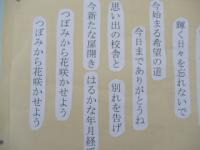 輝く日々を忘れないで
今始まる希望の道
今日までありがとうね
思い出の校舎と 別れを告げ
今新たな扉開き はるかな年月経て
つぼみから花咲かせよう
つぼみから花咲かせよう